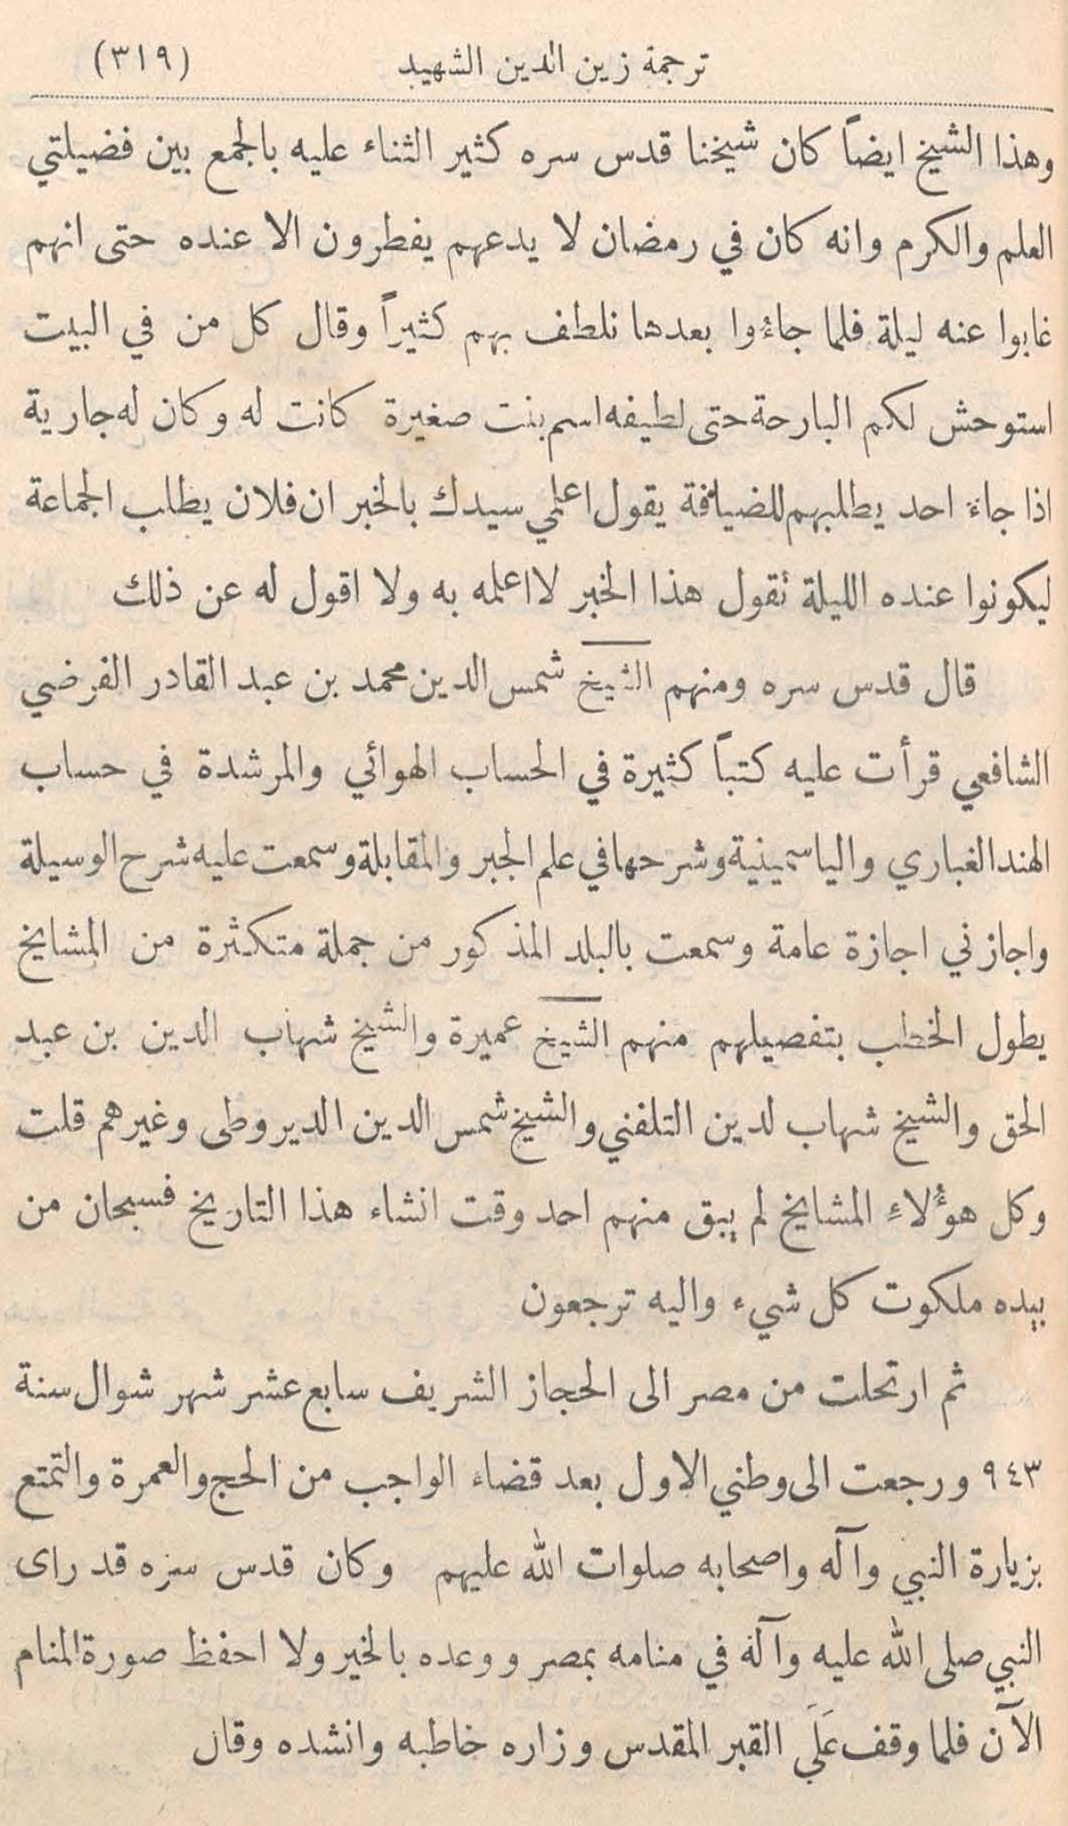 ترجمة زين الدين الشهيد (٣١٩)
وهذا الشيخ ايضاً كان شيخنا قدس سره كثير الثناء عليه بالجمع بين فضيلتي
العلم والكرم وانه كان في رمضان لا يدعهم يفطرون الا عنده حتى انهم
غابوا عنه ليلة فلما جاؤوا بعدها نلطف بهم كثيراً وقال كل من في البيت
استوحش لكم البارحة حتى لطيفه اسم بنت صغيرة كانت له وكان له جارية
اذا جاء احد يطلبهم للضيافة يقول اعلمي سيدك بالخبر ان فلان يطلب الجماعة
ليكونوا عنده الليلة نقول هذا الخبر لا اعلمه به ولا اقول له عن ذلك
قال قدس سره ومنهم الشيخ شمس الدين محمد بن عبد القادر الفرضي
الشافعي قرأت عليه كتباً كثيرة في الحساب الهوائي والمرشدة في حساب
الهند الغباري والياسمينية وشرحها في علم الجبر والمقابلة وسمعت عليه شرح الوسيلة
واجازني اجازة عامة وسمعت بالبلد المذكور من جملة متكثرة من المشايخ
يطول الخطب بتفصيلهم منهم الشيخ عميرة والشيخ شهاب الدين بن عبد
الحق والشيخ شهاب لدين التلفني والشيخ شمس الدين الديروطى وغيرهم قلت
وكل هؤلاءِ المشايخ لم يبق منهم احد وقت انشاء هذا التاريخ فسبحان من
بيده ملكوت كل شيء واليه ترجعون
ثم ارتحلت من مصر الى الحجاز الشريف سابع عشر شهر شوال سنة
٩٤٣ ورجعت الى وطني الاول بعد قضاء الواجب من الحج والعمرة والتمتع
بزيارة النبي وآله واصحابه صلوات الله عليهم وكان قدس سره قد راى
النبي صلى الله عليه وآله في منامه بمصر ووعده بالخير ولا احفظ صورة المنام
الآن فلما وقف عَلَى القبر المقدس وزاره خاطبه وانشده وقال